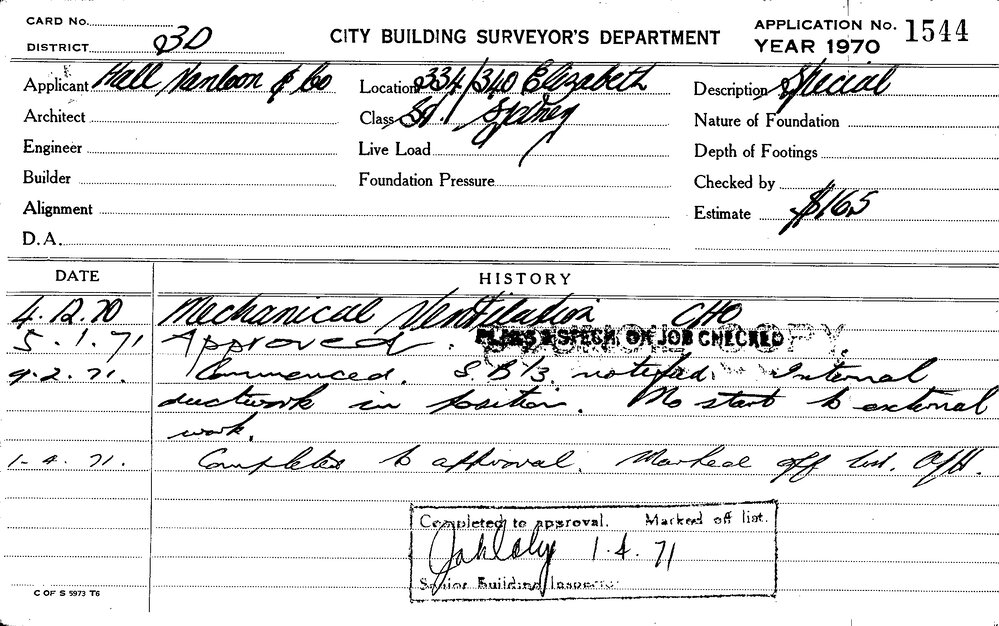 CARD No.
DISTRICT 3D
CITY BUILDING SURVEYOR'S DEPARTMENT
APPLICATION No. 1544
YEAR 1970
Applicant Hall Vanloon & Co
Location 334/340 Elizabeth
Description Special
Architect
Class St. 1 Sydney
Nature of Foundation
Engineer
Live Load
Depth of Footings
Builder
Foundation Pressure
Checked by
Alignment
Estimate $165
D.A.
DATE HISTORY
4.12.70 Mechanical Ventilation CHO
5.1.71 Approved. PLANS & SPECN. ON JOB CHECKED
9.2.71. Commenced. S.B. notified. Internal
ductwork in position. No start to external
work.
1.4.71. Completed to approval. Marked off list.
Completed to approval. Marked off list.
1.4.71
Senior Building Inspector
C OF S 5973 T6